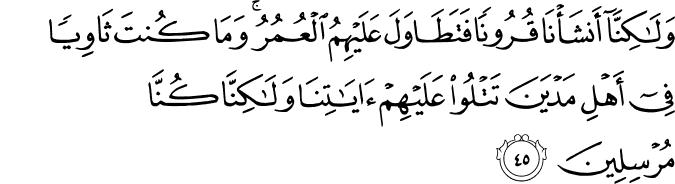 وَلَـٰكِنَّآ أَنشَأْنَا قُرُونًا فَتَطَاوَلَ عَلَيْهِمُ ٱلْعُمُرُ ۚ وَمَا كُنتَ ثَاوِيًا
فِىٓ أَهْلِ مَدْيَنَ تَتْلُوا۟ عَلَيْهِمْ ءَايَـٰتِنَا وَلَـٰكِنَّا كُنَّا
مُرْسِلِينَ ٤٥